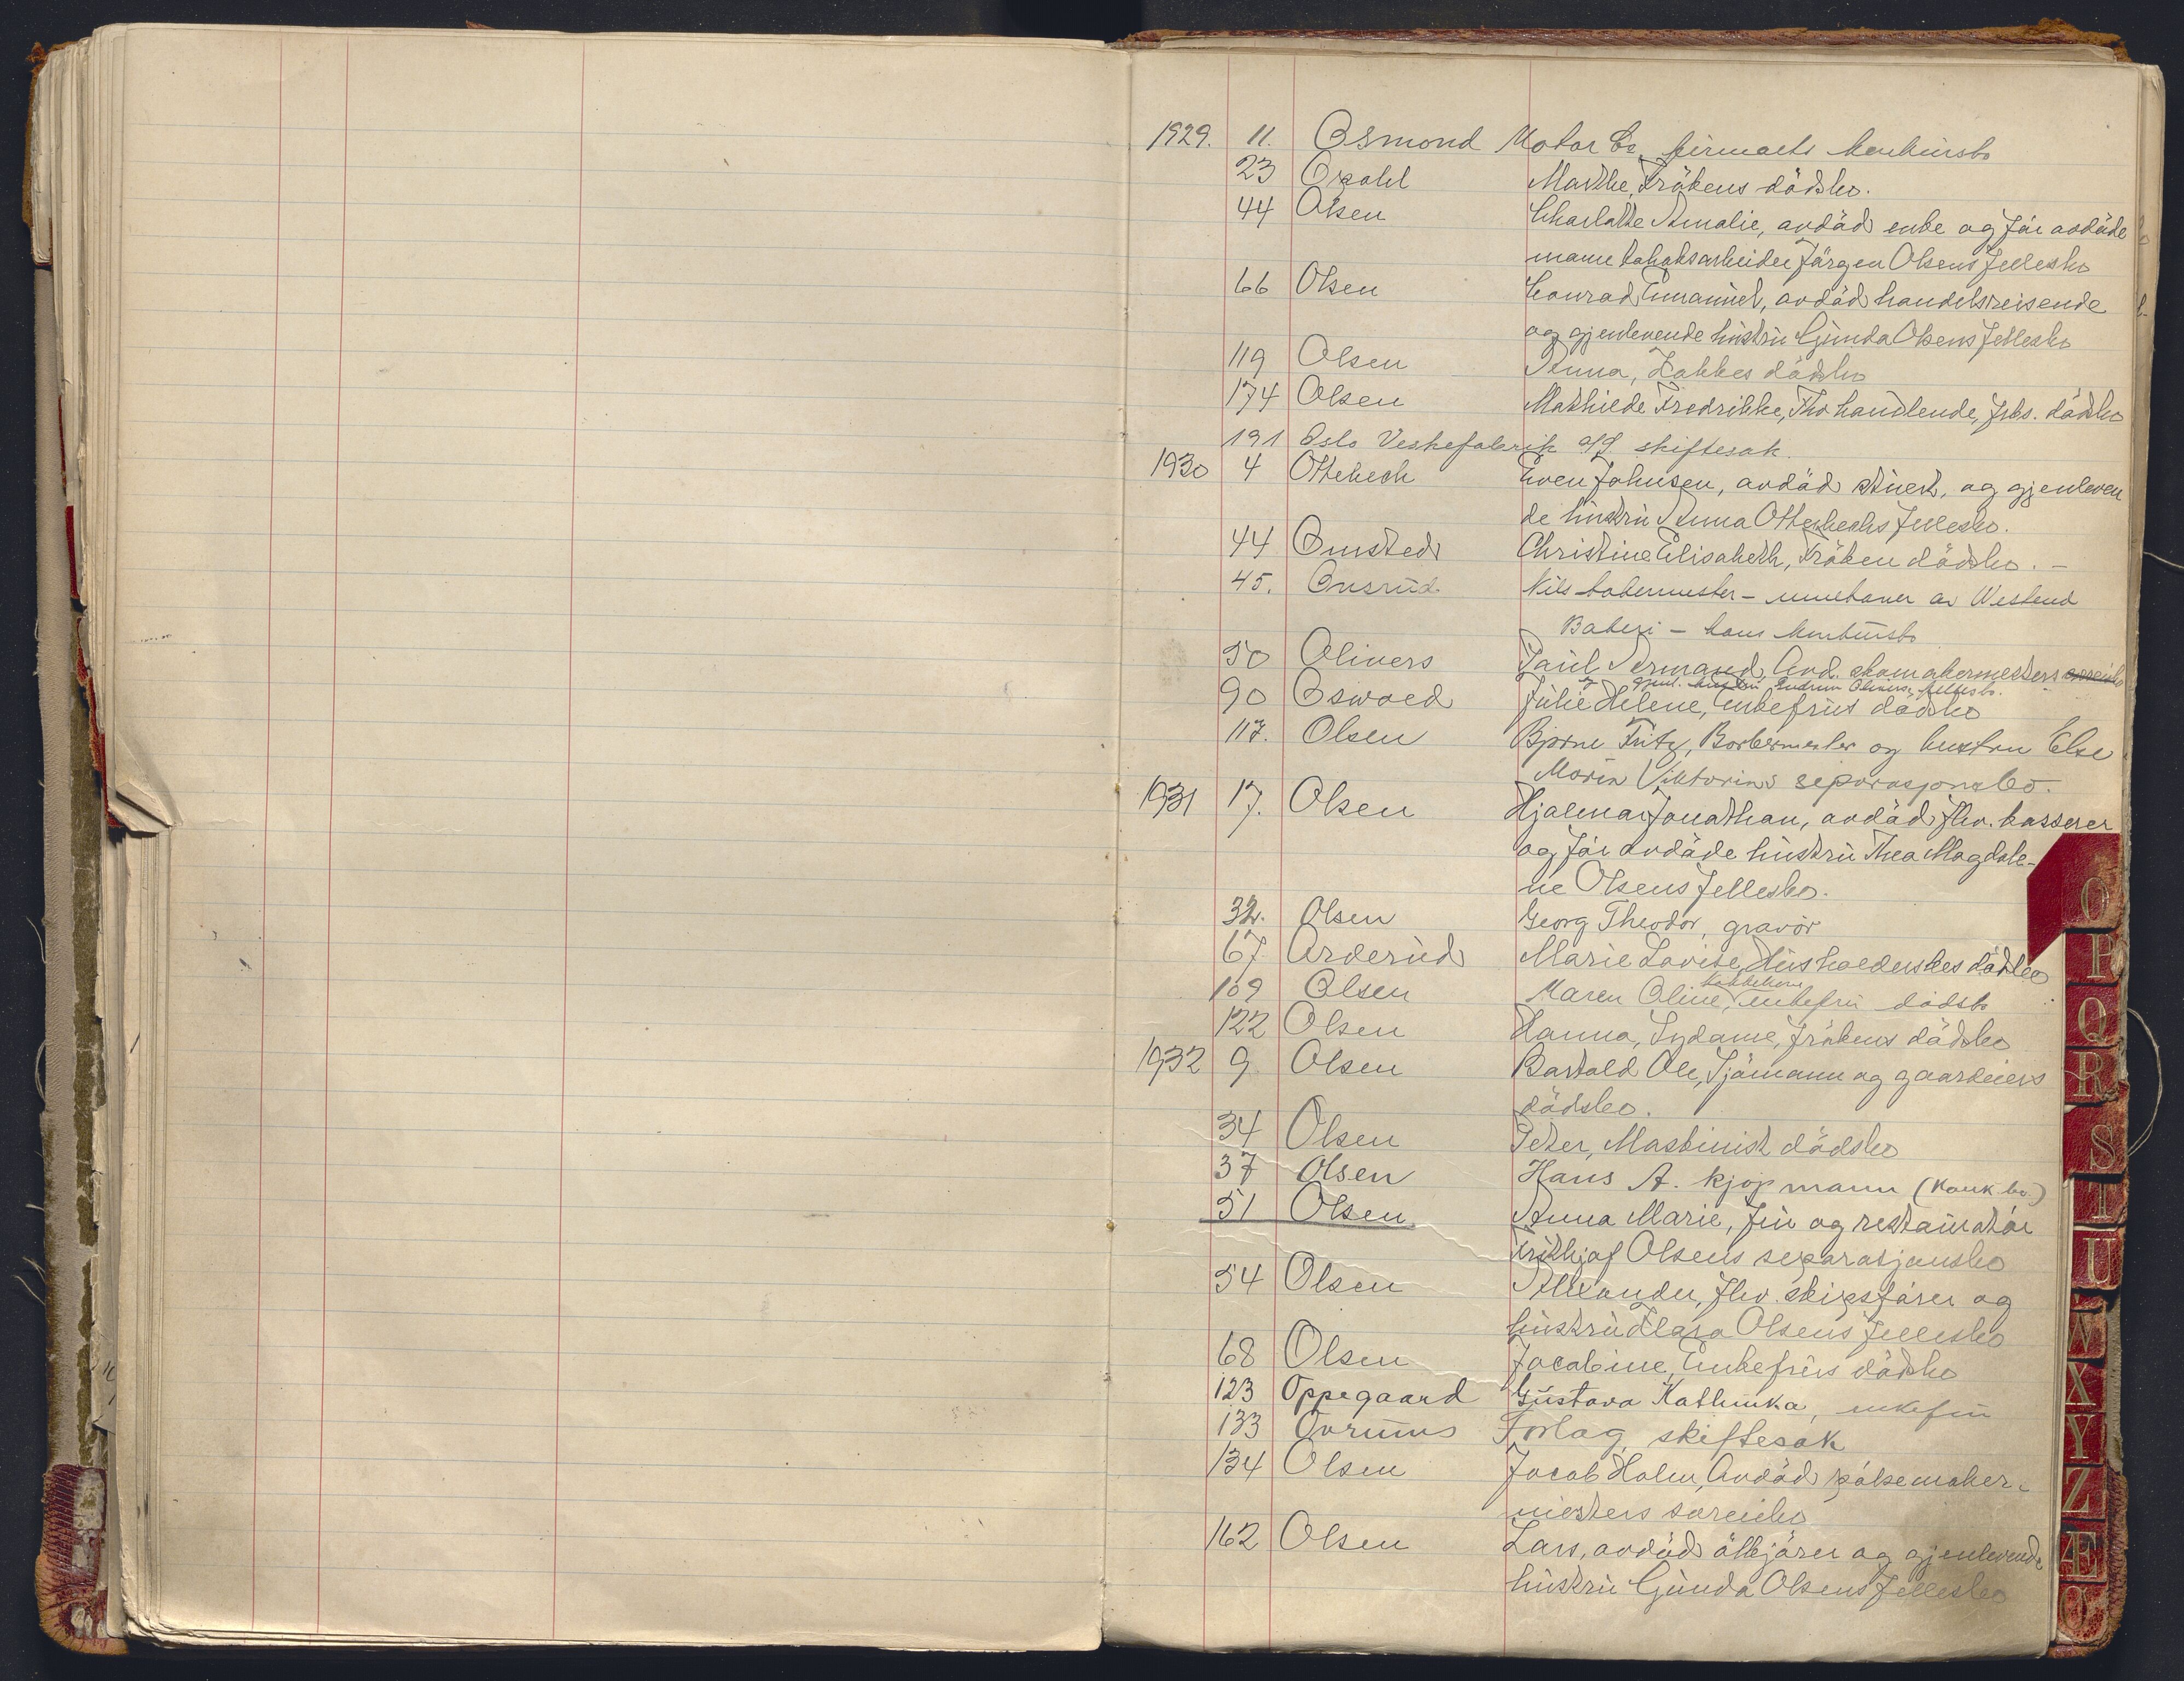 1929. 11. Osmond Motor Co. firmaets konkursbo
23 Opdahl Marthe, Frökens dödsbo.
44 Olsen Charlotte Amalie, avdöd enke og før avdöde
mann tobaksarbeider Jörgen Olsens fellesbo
66 Olsen Conrad Emanuel, avdöd handelsreisende
og gjenlevende hustru Gunda Olsens fellesbo
119 Olsen Anna, Kokkes dödsbo
174 Olsen Mathilde Fredrikke, Fhv handlende, frks. dödsbo
191 Oslo Veskefabrik A/S skiftesak.
1930 4 Otterbech Even Johnsen, avdöd stuert, og gjenleven
de hustru Anna Otterbechs fellesbo.
44 Omsted Christine Elisabeth, Fröken dödsbo. -
45. Onsrud Nils bakermester - innehaver av Westend
Bakeri - hans konkursbo
50 Olivers Paul Armand, Avd. skomakermesters
og gjenl. hustru Gudrun Olivers fellesbo.
90 Oswald Julie Helene, Enkefrus dödsbo
117. Olsen Bjarne Fritz, Barbermester og hustru Else
Maria Viktorias separasjonsbo.
1931 17. Olsen Hjalmar Jonathan, avdöd fhv. kasserer
og før avdöde hustru Thea Magdale-
ne Olsens fellesbo.
32. Olsen Georg Theodor, gravør
67 Orderud Marie Lovise, Husholderskes dödsbo
kokkekone
109 Olsen Maren Oline, enkefru dödsbo
122 Olsen Hanna, Sydame, frökens dödsbo
1932 9 Olsen Bartold Ole, Sjömann og gaardeiers
dödsbo.
34 Olsen Peter, Maskinist dödsbo
37 Olsen Hans A. kjøpmann (konk.bo.)
51 Olsen Anna Marie, fru og restauratör
Frithjof Olsens separasjonsbo
54 Olsen Alexander, fhv. skipsförer og
hustru Klara Olsens fellesbo
68 Olsen Jacobine, Enkefrus dödsbo
123 Oppegaard Gustava Kathinka, enkefru
133 Ovrums Forlag, skiftesak
134 Olsen Jacob Holm, Avdöd pölsemaker-
mesters særeiebo
162 Olsen Lars, avdöd ölkjörer og gjenlevende
hustru Gunda Olsens fellesbo
O
P
Q
R
S
T
U
X
Y
Z
Æ
Ø